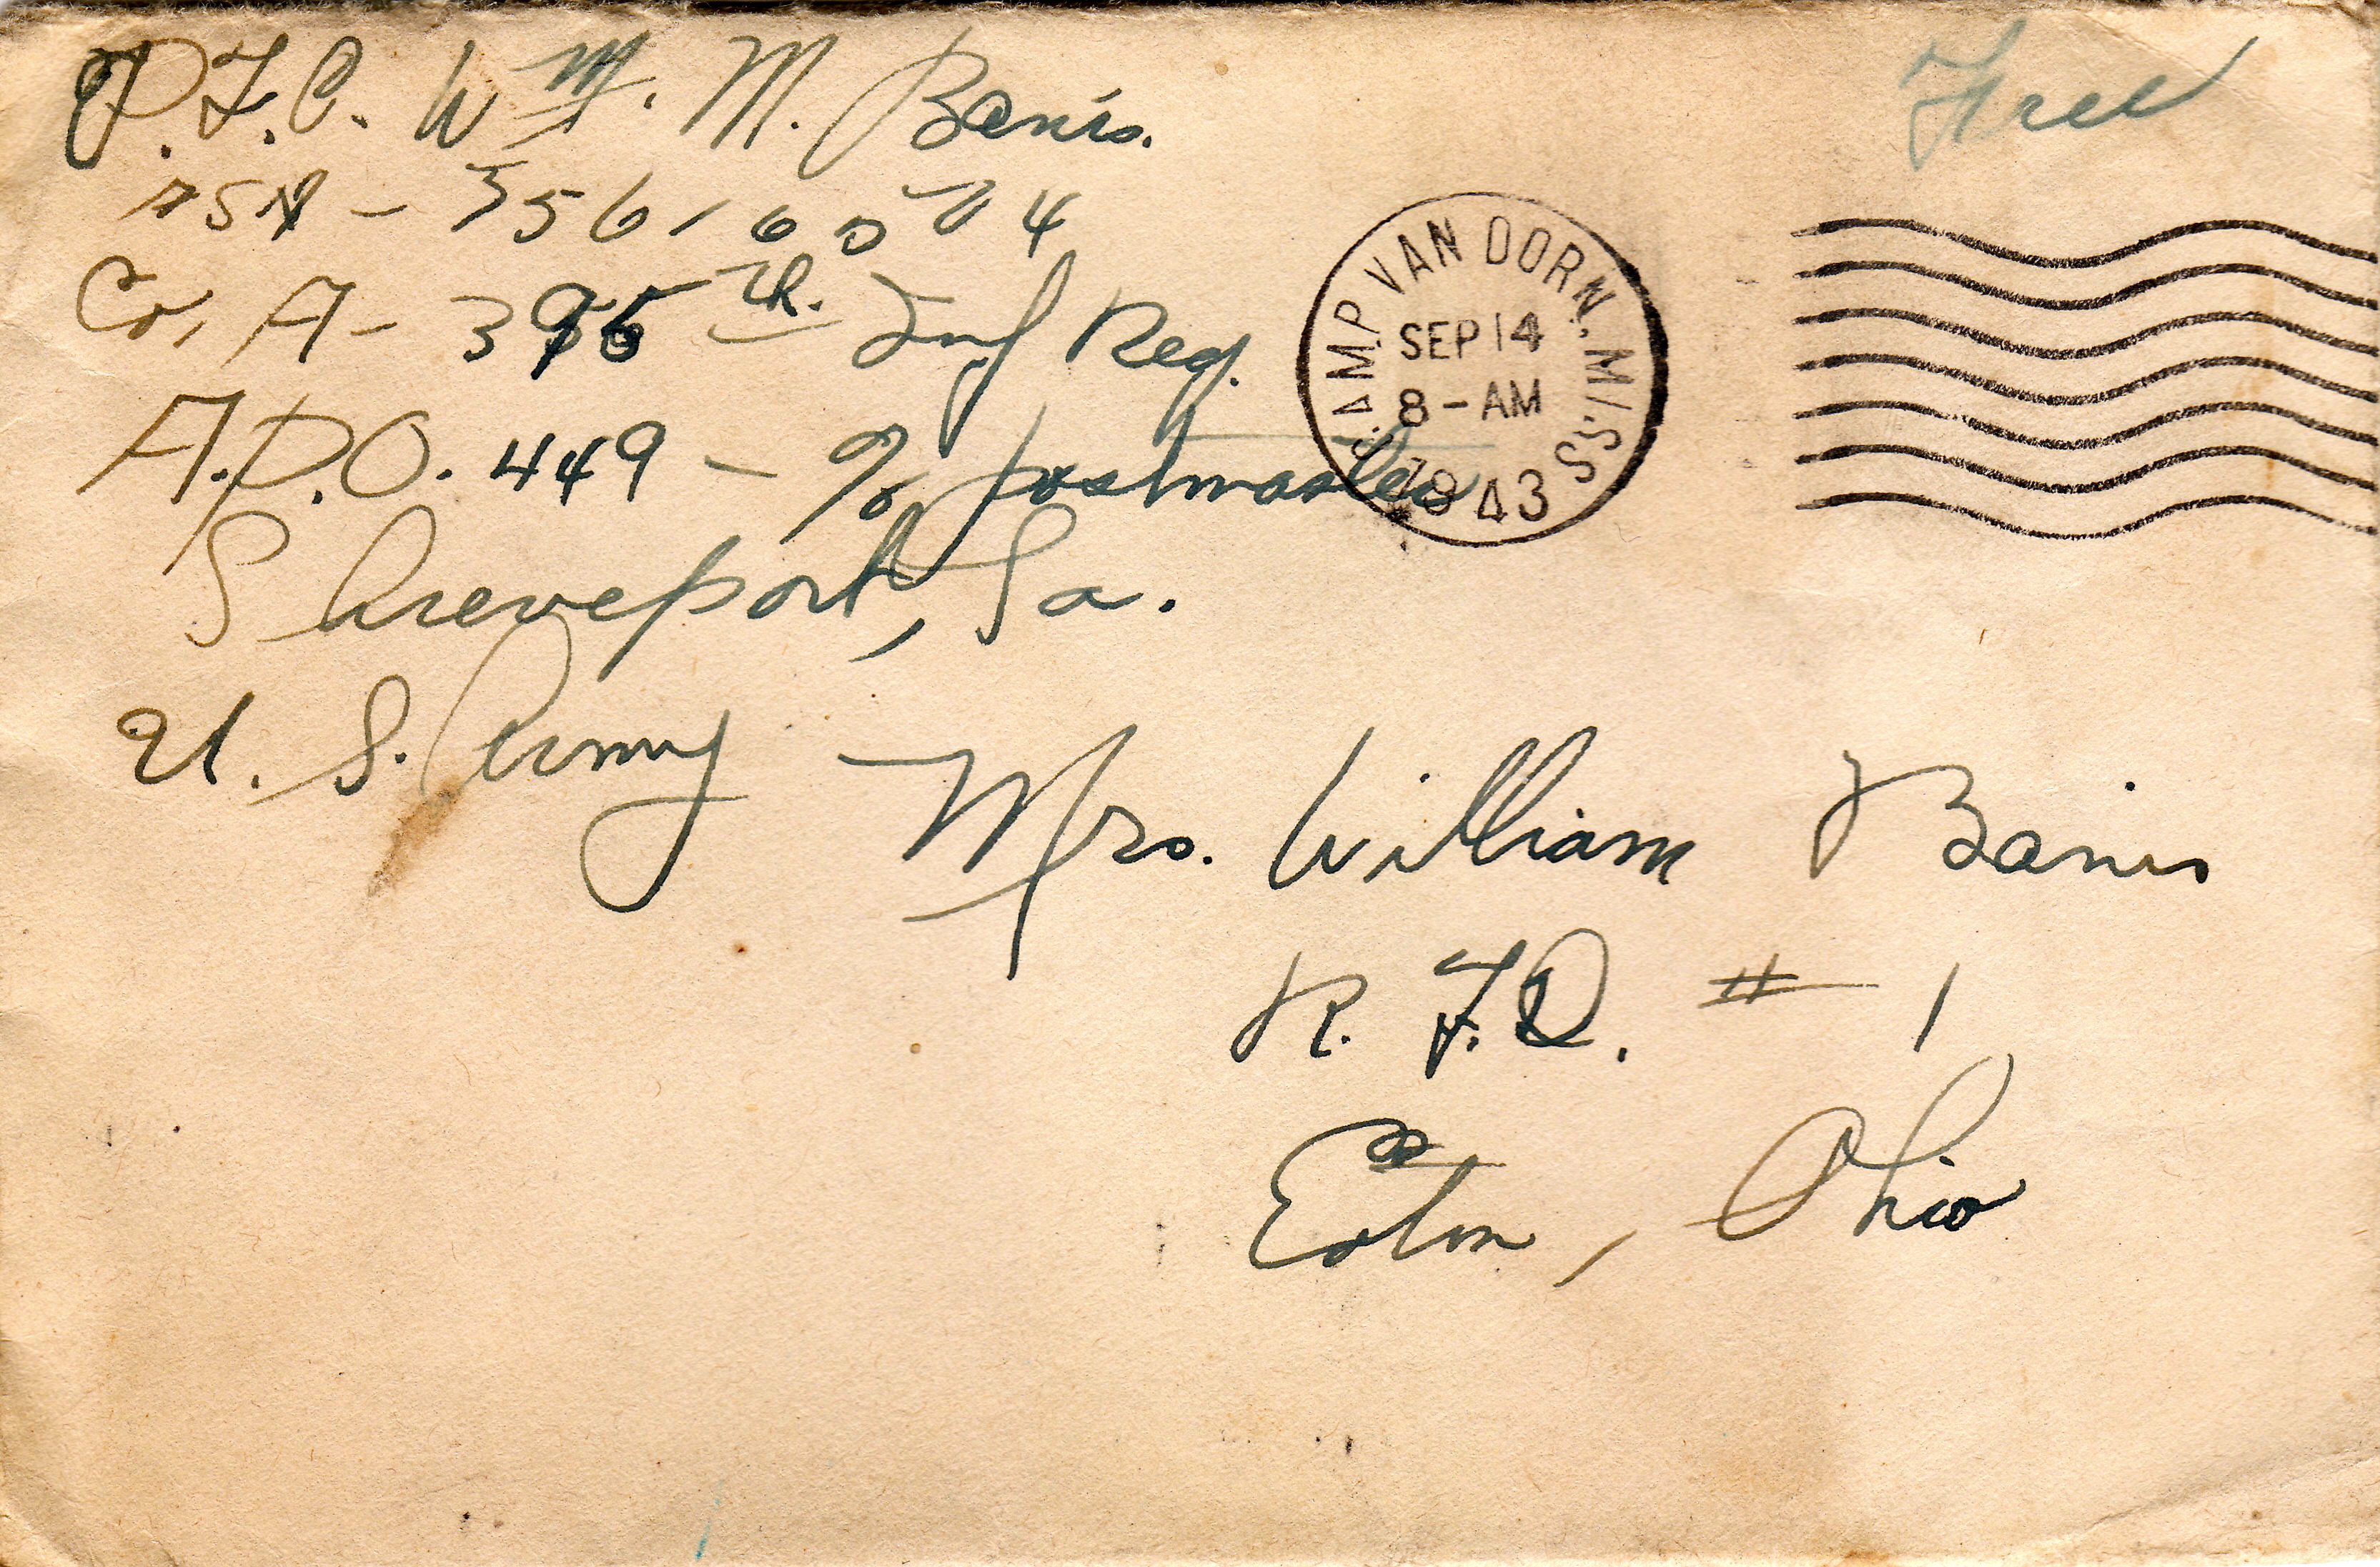 P.F.C. Wm. M. Banis.
ASN - 35616074
Co, A - 395th. Inf Reg.
A.P.O. 449 - % postmaster
Shreveport, La.
U. S. Army
Free
CAMP VAN DORN, MISS.
SEP 14
8 - AM
1943
Mrs. William Banis
R. F.D. # 1
Eaton, Ohio